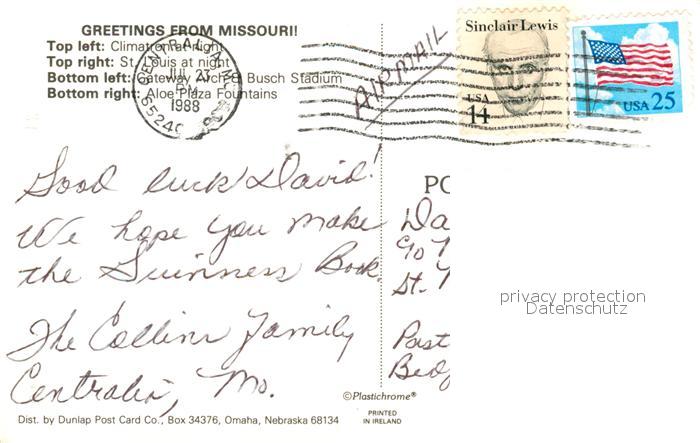 GREETINGS FROM MISSOURI!
Top left: Climatron at night
Top right: St. Louis at night
Bottom left: Gateway Arch & Busch Stadium
Bottom right: Aloe Plaza Fountains
CENTRALIA, MO
JUL 23
PM
1988
65240
AIRMAIL
Sinclair Lewis
USA
14
USA 25
Good luck David!
We hope you make
the Guinness Book.
The Collins Family
Centralia, Mo.
PO
Da
c/o
St.
Past
Bed
privacy protection
Datenschutz
©Plastichrome®
PRINTED
IN IRELAND
Dist. by Dunlap Post Card Co., Box 34376, Omaha, Nebraska 68134